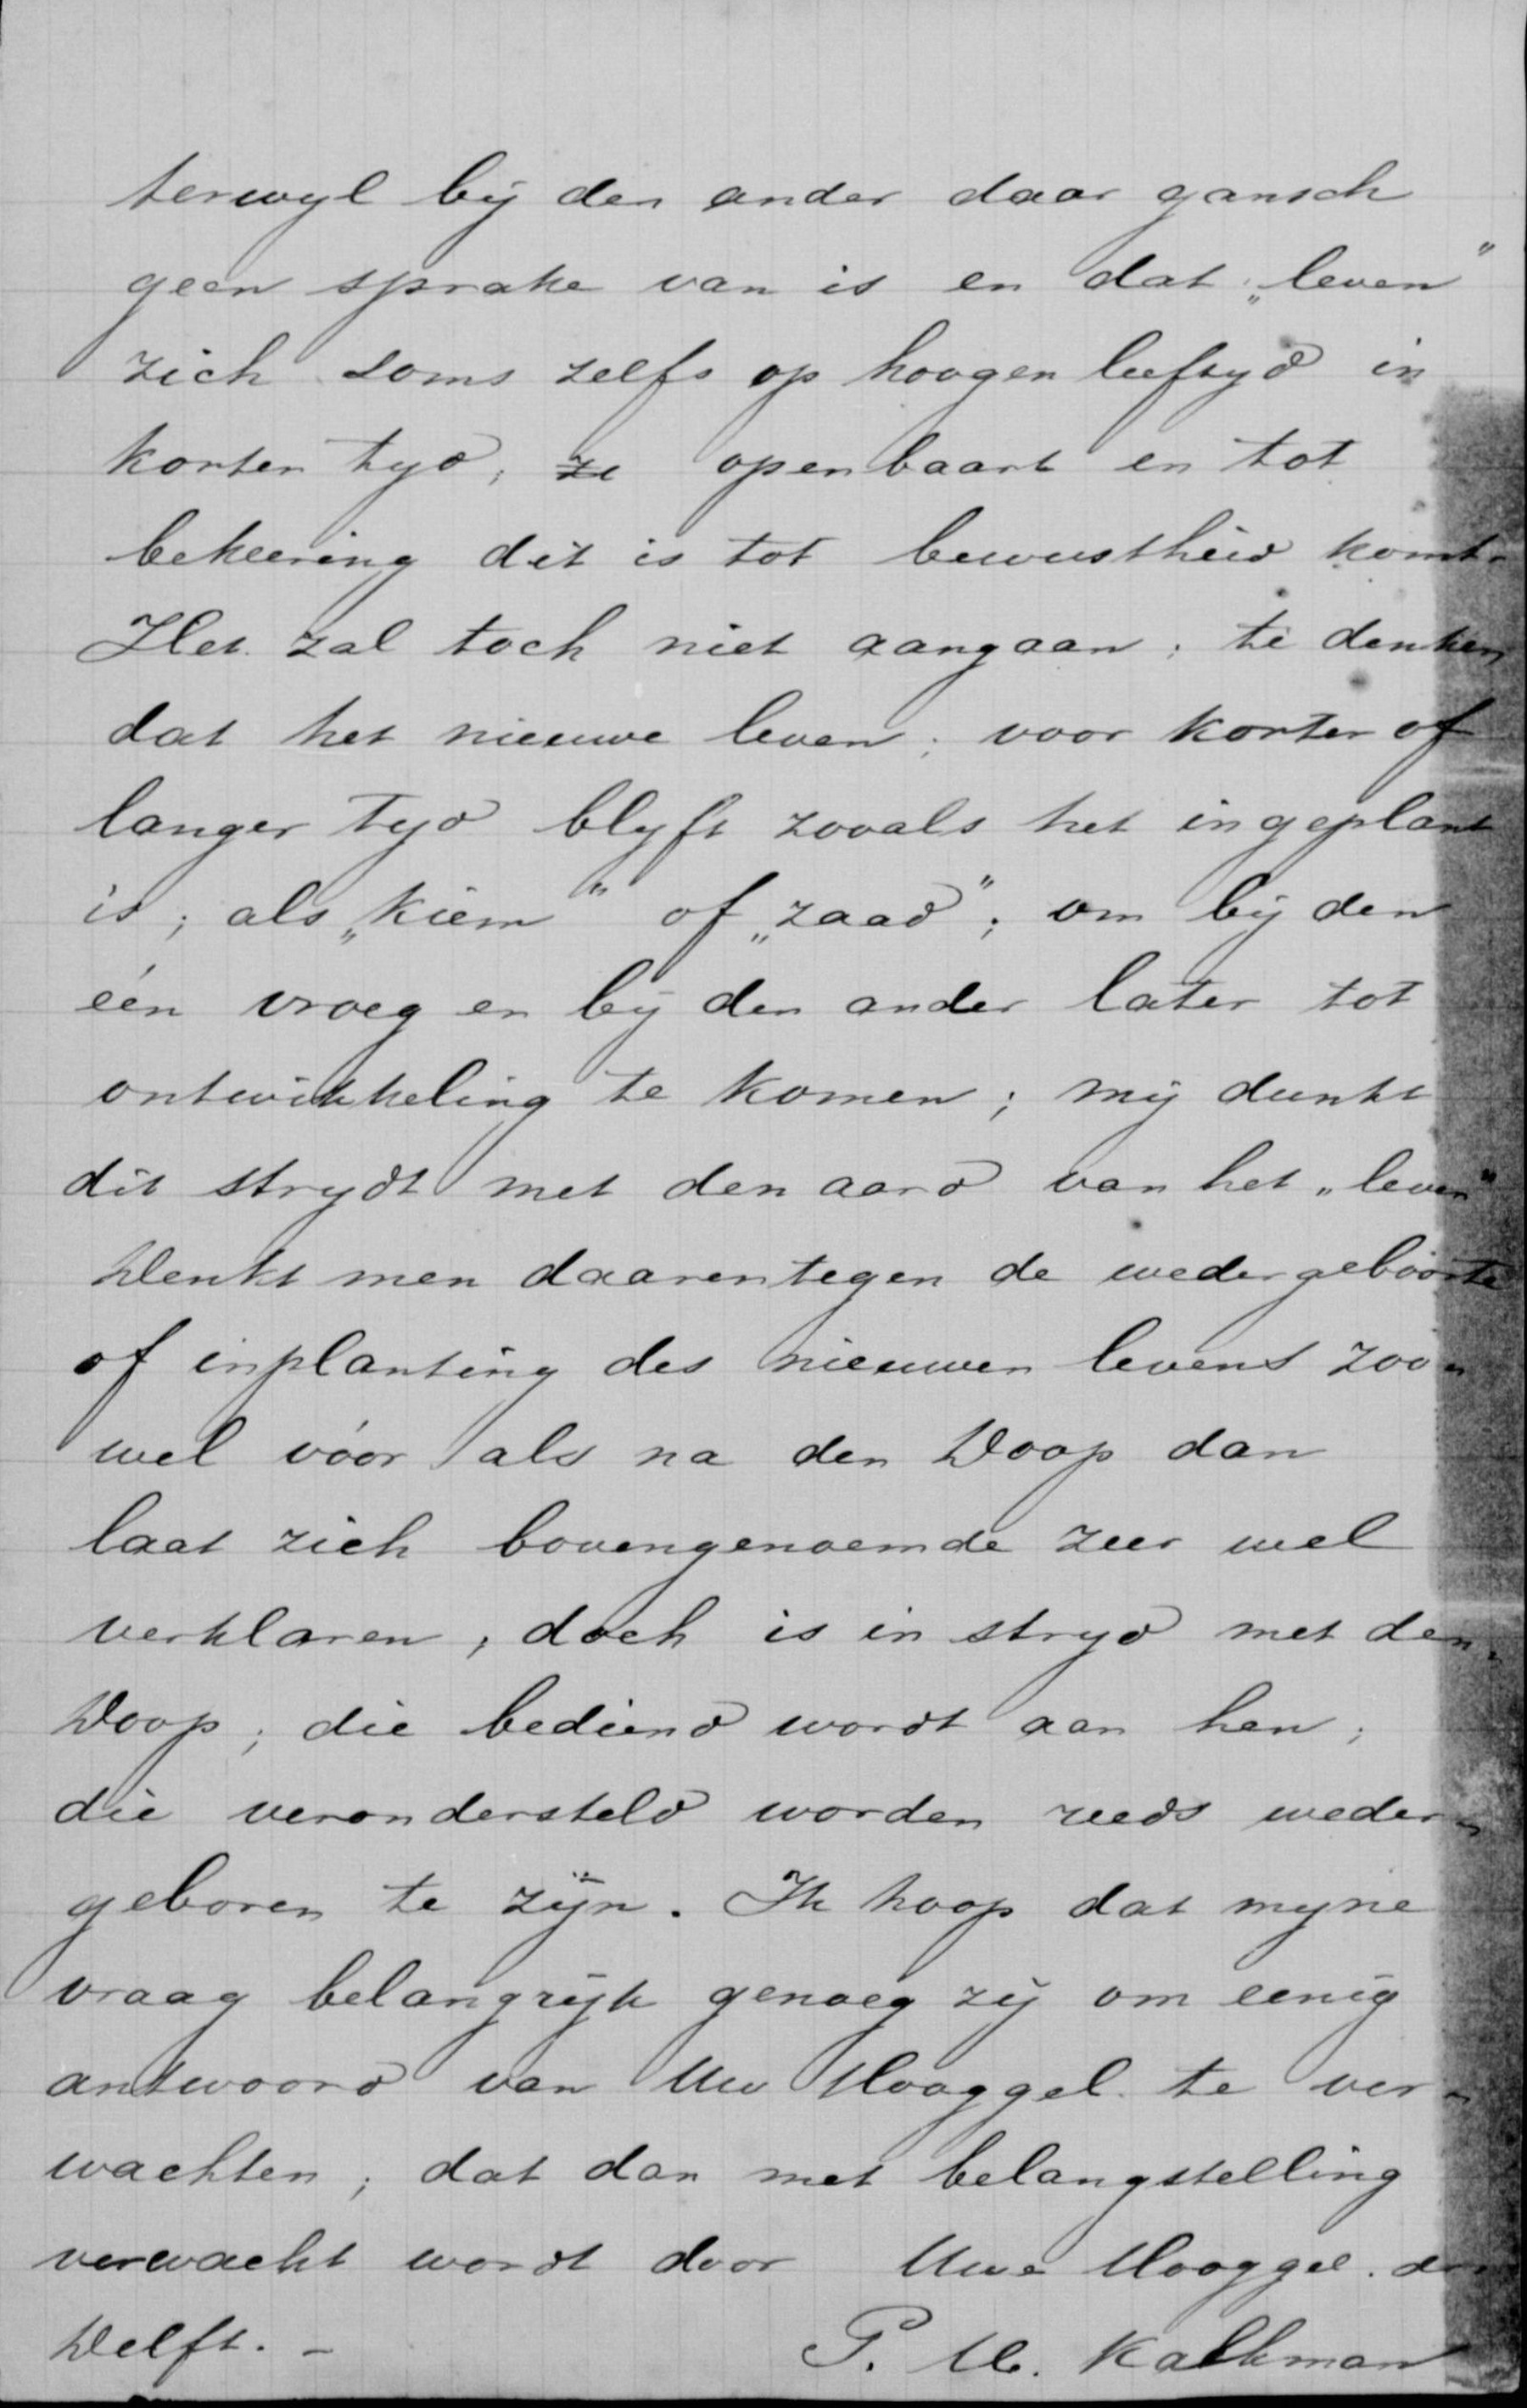 terwyl bij den ander daar gansch
geen sprake van is en dat „leven”
zich soms zelfs op hoogen leeftyd in
korten tyd, ze openbaart en tot
bekeering dit is tot bewustheid komt.
Het zal toch niet aangaan, te denken
dat het nieuwe leven, voor korter of
langer tyd blyft zooals het ingeplant
is, als „kiem” of „zaad”, om bij den
één vroeg en bij den ander later tot
ontwikkeling te komen; mij dunkt
dit strydt met den aard van het „leven”
Denkt men daarentegen de wedergeboorte
of inplanting des nieuwen levens zoo-
wel vóor als na den Doop dan
laat zich bovengenoemde zeer wel
verklaren, doch is in stryd met den
Doop, die bediend wordt aan hen,
die verondersteld worden reeds weder-
geboren te zijn. Ik hoop dat myne
vraag belangrijk genoeg zij om eenig
antwoord van Uw Hooggel. te ver-
wachten, dat dan met belangstelling
verwacht wordt door Uwe Hooggel.
Delft. - P. M. Kalkman